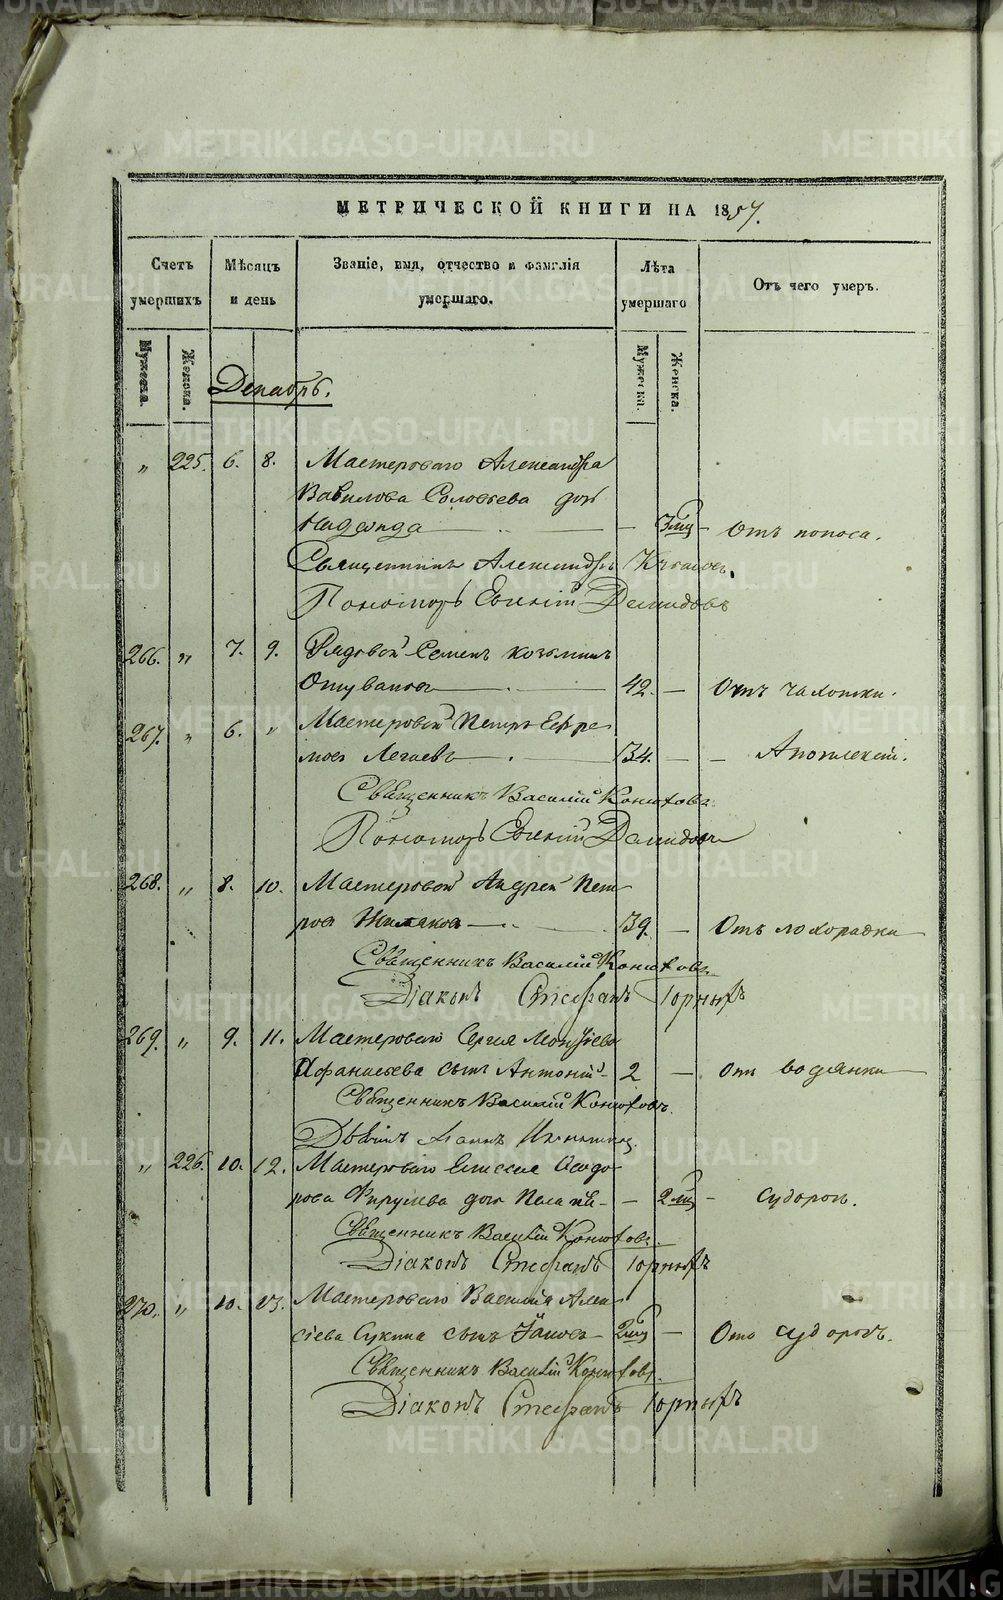 МЕТРИЧЕСКОЙ КНИГИ НА 1857.
Счетъ умершихъ
Мѣсяцъ и день
Званіе, имя, отчество и фамилія умершаго.
Лѣта умершаго
Отъ чего умеръ.
Мужеска. Женска.
Мужеска. Женска.
Декабрь.
„ 225. 6. 8. Мастероваго Александра
Вавилова Соловьева дочь
Надежда — 3 мц — Отъ поноса.
Священникъ Александръ
Пономарь Евгеній Демидовъ
266. „ 7. 9. Рядовой Семенъ Козьминъ
42. — Отъ чахотки.
267. „ 6. „ Мастеровой Петръ Ефре-
мовъ Легаевъ — 34. — Апоплексіи.
Священникъ Василій Конюховъ.
Пономарь Евгеній Демидовъ
268. „ 8. 10. Мастеровой Андрей Пет-
ровъ — 39. — Отъ лихорадки
Священникъ Василій Конюховъ.
Діаконъ Стефанъ Горныхъ
269. „ 9. 11. Мастероваго Сергея Моисеева
Афанасьева сынъ Антоній — 2 — Отъ водянки
Священникъ Василій Конюховъ.
„ 226. 10. 12. Мастероваго Елисея Ѳедо-
рова дочь Пелагія — 2 мц — Судорог.
Священникъ Василій Конюховъ.
Діаконъ Стефанъ Горныхъ
270. „ 10. 13. Мастероваго Василія Алек-
сіева Сукина сынъ Іаковъ — 2 мц — Ото судорогъ.
Священникъ Василій Конюховъ.
Діаконъ Стефанъ Горныхъ
METRIKI.GASO-URAL.RU